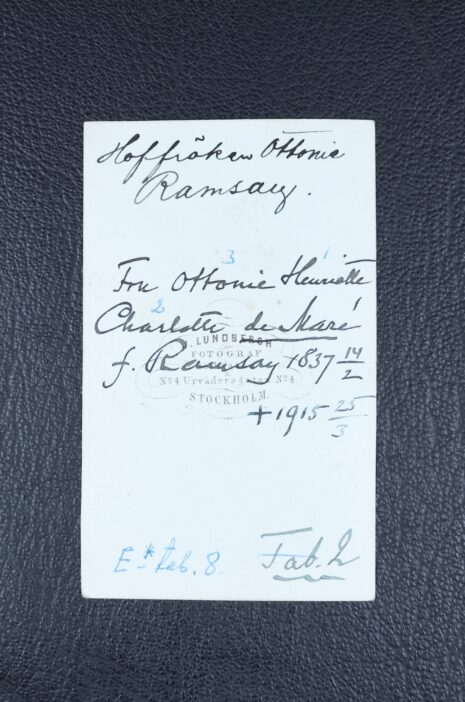 Hoffröken Ottonie
Ramsay.
3 1
Fru Ottonie Henriette
2
Charlotte de Maré
. LUNDBERGH
FOTOGRAF
f. Ramsay 1837 14/2
No 4 Urvädersgatan No 4.
STOCKHOLM.
+ 1915 25/3
E* tab. 8. Tab. 2